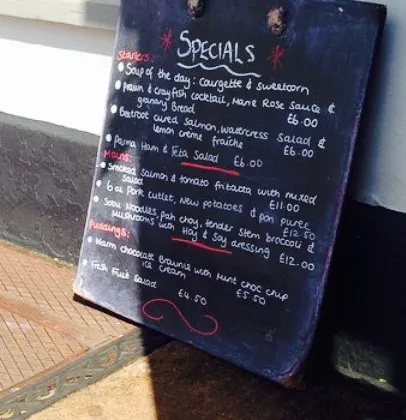 SPECIALS
Starters:
Soup of the day: Courgette & sweetcorn
prawn & crayfish cocktail, Marie Rose Sauce &
granary Bread £6.00
Beetroot cured Salmon, watercress Salad &
lemon crème fraîche £6.00
Parma Ham & Feta Salad £6.00
Mains:
Smoked Salmon & tomato fritatta with mixed
Salad £11.00
6 oz Pork Cutlet, New potatoes & pea puree
£12.50
Soba Noodles, pak choy, tender Stem broccoli &
Mushrooms with Hoy & Soy dressing £12.00
Puddings:
Warm chocolate Brownie with Mint choc chip
ice cream £5.50
Fresh Fruit Salad £4.50